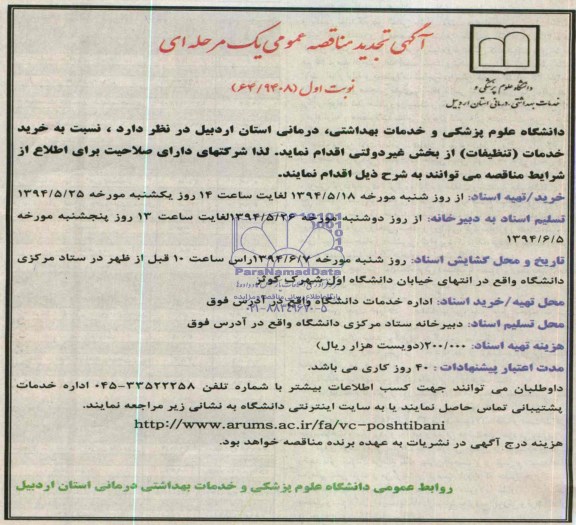 آگهی تجدید مناقصه عمومی یک مرحله ای
نوبت اول (۶۴/۹۴۰۸)
دانشگاه علوم پزشکی و
خدمات بهداشتی، درمانی استان اردبیل
دانشگاه علوم پزشکی و خدمات بهداشتی، درمانی استان اردبیل در نظر دارد ، نسبت به خرید
خدمات (تنظیفات) از بخش غیردولتی اقدام نماید. لذا شرکتهای دارای صلاحیت برای اطلاع از
شرایط مناقصه می توانند به شرح ذیل اقدام نمایند.
خرید/تهیه اسناد: از روز شنبه مورخه ۱۳۹۴/۵/۱۸ لغایت ساعت ۱۴ روز یکشنبه مورخه ۱۳۹۴/۵/۲۵
تسلیم اسناد به دبیرخانه: از روز دوشنبه مورخه ۱۳۹۴/۵/۲۶لغایت ساعت ۱۳ روز پنجشنبه مورخه
۱۳۹۴/۶/۵
تاریخ و محل گشایش اسناد: روز شنبه مورخه ۱۳۹۴/۶/۷راس ساعت ۱۰ قبل از ظهر در ستاد مرکزی
دانشگاه واقع در انتهای خیابان دانشگاه اول شهرک کوثر
محل تهیه/خرید اسناد: اداره خدمات دانشگاه واقع در آدرس فوق
محل تسلیم اسناد: دبیرخانه ستاد مرکزی دانشگاه واقع در آدرس فوق
هزینه تهیه اسناد: ۲۰۰/۰۰۰(دویست هزار ریال)
مدت اعتبار پیشنهادات : ۴۰ روز کاری می باشد.
داوطلبان می توانند جهت کسب اطلاعات بیشتر با شماره تلفن ۳۳۵۲۲۲۵۸-۰۴۵ اداره خدمات
پشتیبانی تماس حاصل نمایند یا به سایت اینترنتی دانشگاه به نشانی زیر مراجعه نمایند.
http://www.arums.ac.ir/fa/vc-poshtibani
هزینه درج آگهی در نشریات به عهده برنده مناقصه خواهد بود.
روابط عمومی دانشگاه علوم پزشکی و خدمات بهداشتی درمانی استان اردبیل
ParsNamadData
۰۲۱-۸۸۳۴۹۶۷۰-۵